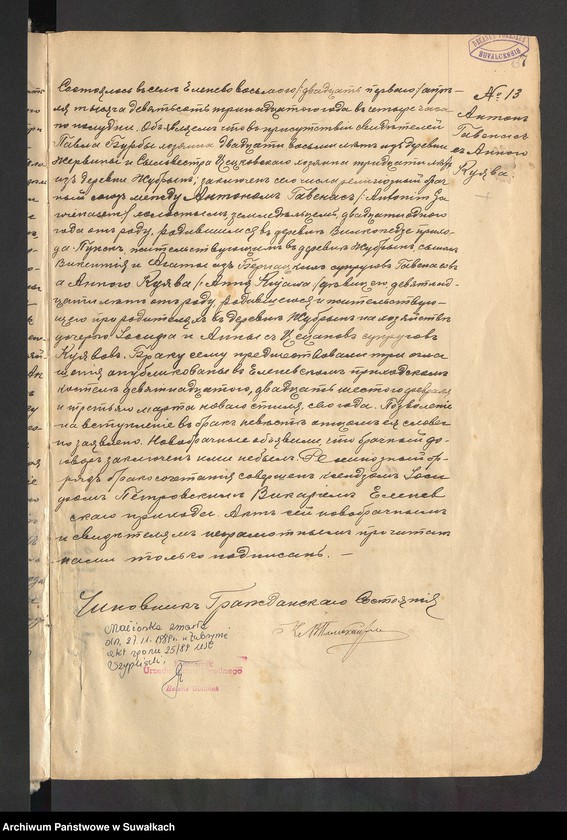 № 13
Антонъ
Гавенасъ
съ Анною
Куява.
Состоялось въ селѣ Еленево восьмого /двадцать перваго/ апрѣ-
ля тысяча девятьсотъ тринадцатого года въ четыре часа
по полудни. Объявляемъ что въ присутствіи свидѣтелей
Павла Бурбы хозяина двадцати восьми лѣтъ изъ деревни
и Сильвестра хозяина тридцати лѣтъ
изъ деревни Жубрынъ; заключенъ сего числа религіозный брач-
ный союзъ между Антономъ Гавенасъ /:Antonim Ga
wienasem:/ холостымъ земледѣльцемъ, двадцати одного
года отъ роду, родившимся въ деревнѣ прихо-
да Пунскъ, жительствующимъ въ деревнѣ Жубрынъ сыномъ
Викентія и супруговъ Гавенасовъ
а Анною Куява /:Anną Kujawa:/ дѣвицею девятнад-
цати лѣтъ отъ роду, родившеюся и жительствую-
щею при родителяхъ въ деревнѣ Жубрынъ на хозяйствѣ
дочерью Іосифа и Анны супруговъ
Куявовъ. Браку сему предшествовали три огла-
шенія опубликованы въ Еленевскомъ приходскомъ
костелѣ девятнадцатого, двадцать шестого февраля
и третьяго марта новаго стиля, сего года. Позволеніе
на вступленіе въ бракъ невѣстѣ отцомъ ея словес-
но заявлено. Новобрачные объявили, что брачный до-
говоръ заключенъ ими не былъ. Религіозный об-
рядъ бракосочетанія совершенъ ксендзомъ Іоси
фомъ Петровскимъ Викаріемъ Еленев
скаго прихода. Актъ сей новобрачнымъ
и свидѣтелямъ неграмотнымъ прочитанъ
нами только подписанъ. —
Чиновникъ Гражданскаго Состоянія
Małżonka zmarła
dn. 27.11.1989r. w Żubrynie
akt zgonu 25/89 USC
Szypliszki.
Archiwum Państwowe w Suwałkach